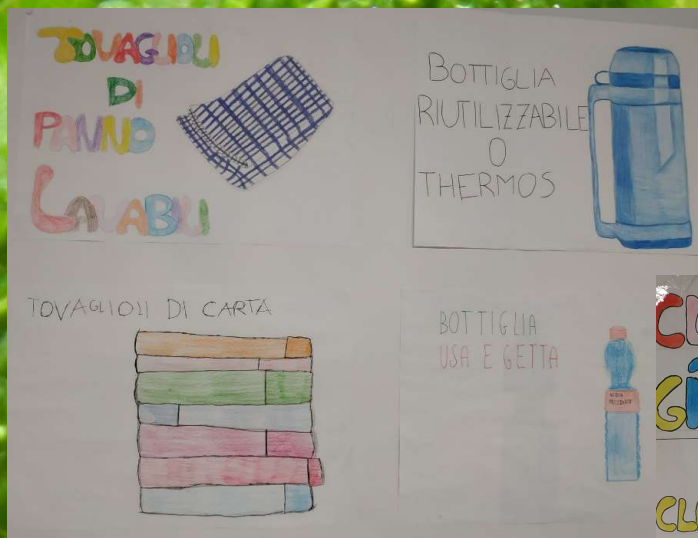 TOVAGLIOLI
DI
PANNO
LAVABILI
BOTTIGLIA
RIUTILIZZABILE
O
THERMOS
TOVAGLIOLI DI CARTA
BOTTIGLIA
USA E GETTA